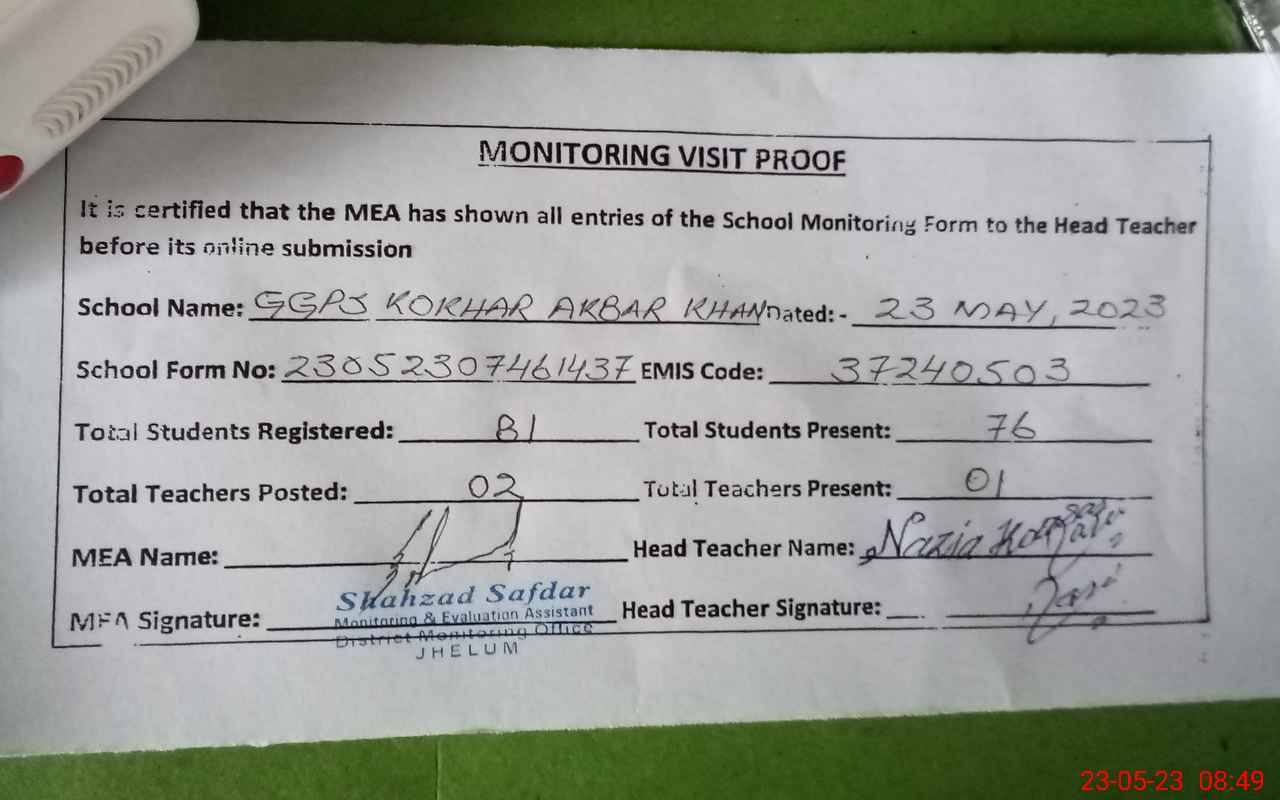 MONITORING VISIT PROOF
It is certified that the MEA has shown all entries of the School Monitoring Form to the Head Teacher
before its online submission
School Name: GGPS KOKHAR AKBAR KHAN Dated: - 23 MAY, 2023
School Form No: 23052307461437 EMIS Code: 37240503
Total Students Registered: 81 Total Students Present: 76
Total Teachers Posted: 02 Total Teachers Present: 01
MEA Name: Head Teacher Name: Nazia
MEA Signature: Head Teacher Signature:
Shahzad Safdar
Monitoring & Evaluation Assistant
District Monitoring Office
JHELUM
23-05-23 08:49